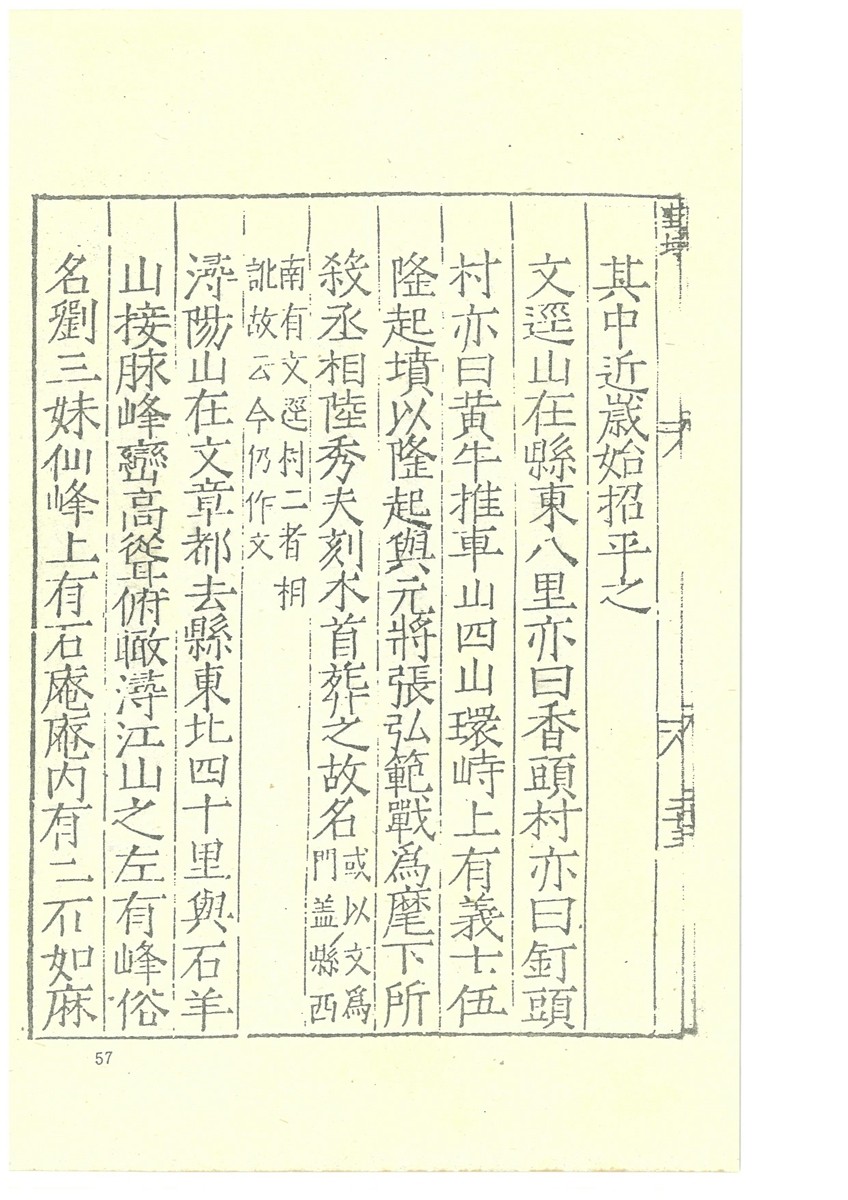 其中近歲始招平之
文逕山在縣東八里亦曰香頭村亦曰釘頭
村亦曰黄牛推車山四山環峙上有義士伍
隆起墳以隆起與元將張弘範戰爲麾下所
殺丞相陸秀夫刻木首葬之故名或以文爲門盖縣西
南有文逕村二者相訛故云今仍作文
潯陽山在文章都去縣東北四十里與石羊
山接脉峰巒高聳俯瞰潯江山之左有峰俗
名劉三妹仙峰上有石庵庵内有二石如麻
57